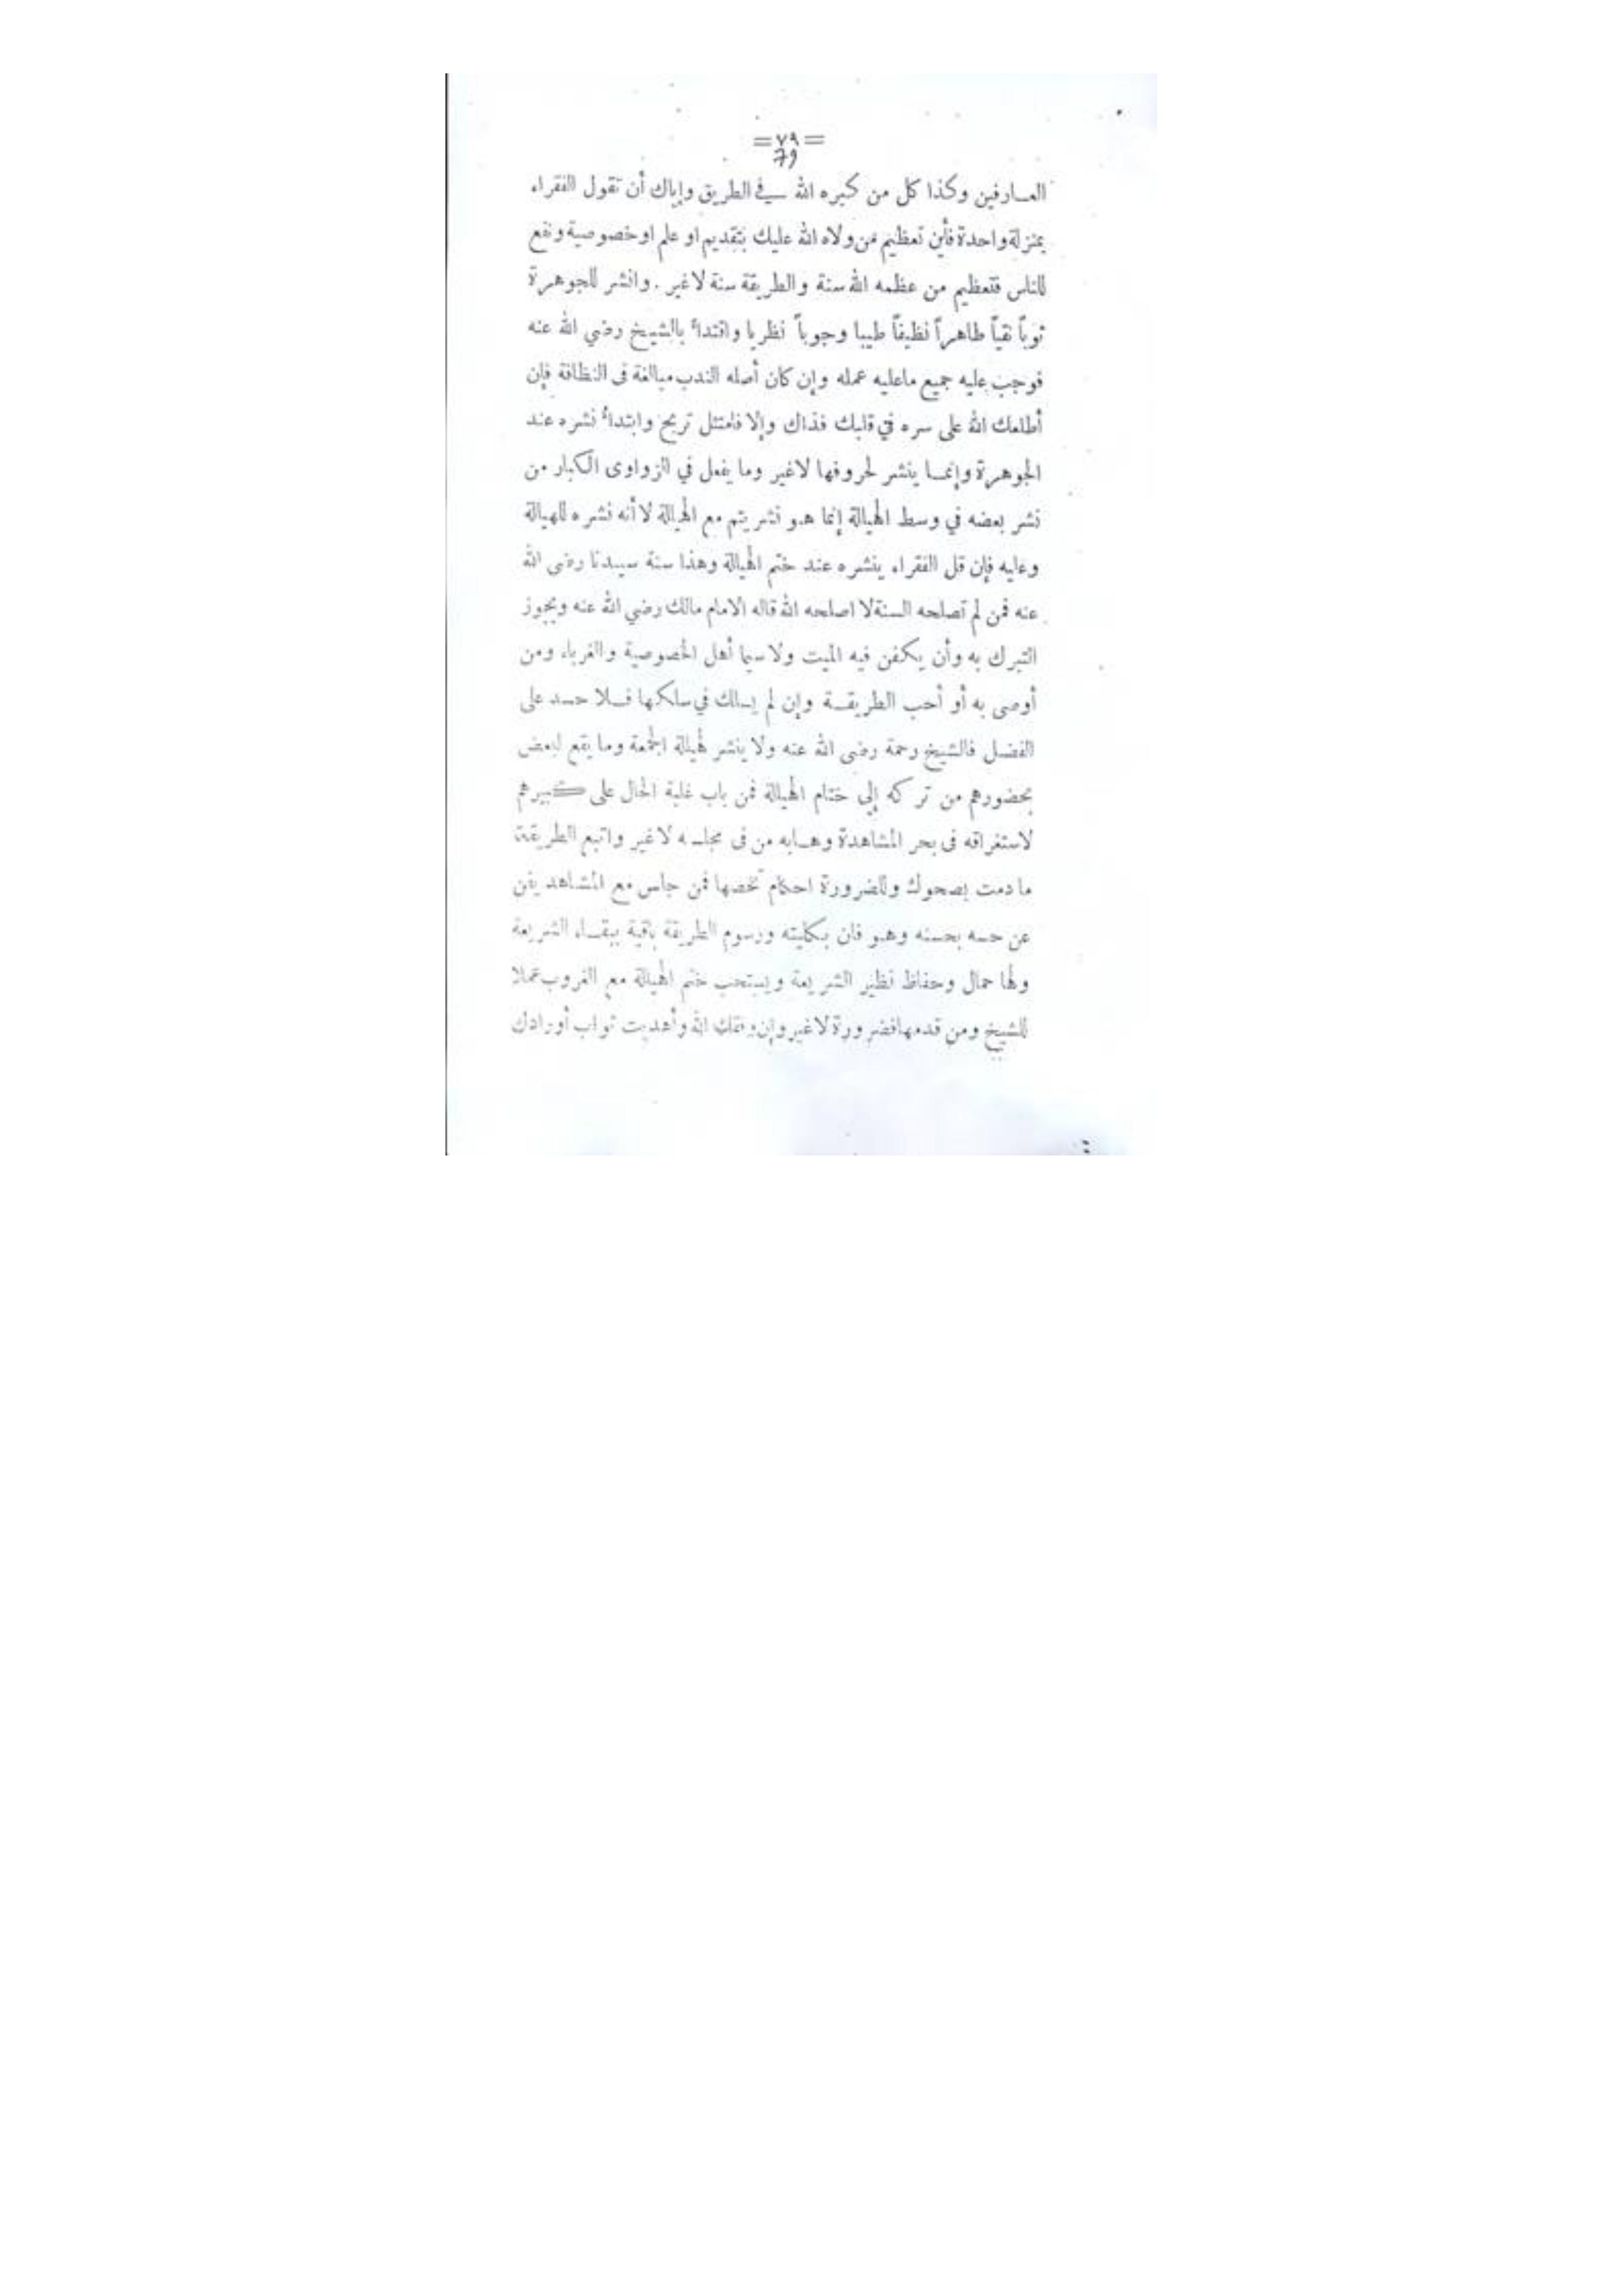 =٧٩=
79
العــارفين وكذا كل من كبره الله ســفي الطريق وإياك أن تقول الفقراء
بمنزلة واحدة فأين تعظيم من ولاه الله عليك بتقديم او علم او خصوصية ونفع
للناس فتعظيم من عظمه الله سنة والطريقة سنة لاغير . وانشر للجوهرة
ثوباً نقياً طاهراً نظيفاً طيبا وجوباً نظريا واقتداءً بالشيخ رضي الله عنه
فوجب عليه جميع ماعليه عمله وإن كان أصله الندب مبالغة فى النظافة فإن
أطلعك الله على سره في قلبك فذاك وإلا فامتثل تربح وابتداءً نشره عند
الجوهرة وإنمــا ينشر لحروفها لاغير وما يفعل في الزواوى الكبار من
نشر بعضه في وسط الهيالة إنما هو نشر يتم مع الهيالة لا أنه نشره للهيالة
وعليه فإن قل الفقراء ينشره عند ختم الهيالة وهذا سنة سيدنا رضى الله
عنه فمن لم تصلحه السنة لا اصلحه الله قاله الامام مالك رضي الله عنه ويجوز
التبرك به وأن يكفن فيه الميت ولاسيما أهل الخصوصية والغرباء ومن
أوصى به أو أحب الطريقــة وإن لم يسلك في سلكها فــلا حسد على
الفضل فالشيخ رحمة رضى الله عنه ولا ينشر لهيللة الجمعة وما يقع لبعض
بحضورهم من تركه إلى ختام الهيالة فمن باب غلبة الحال على كبيرهم
لاستغراقه فى بحر المشاهدة وهــابه من فى مجلسه لاغير واتبع الطريقة
ما دمت بصحوك وللضرورة احكام تخصها فمن جلس مع المشاهد يفن
عن حسه بحسنه وهو فان بكليته ورسوم الطريقة باقية ببقــاء الشريعة
ولها حمال وحفاظ نظير الشريعة ويستحب ختم الهيللة مع الغروب عملا
للشيخ ومن قدمها فضرورة لاغير وإن وفقك الله وأهديت ثواب أورادك